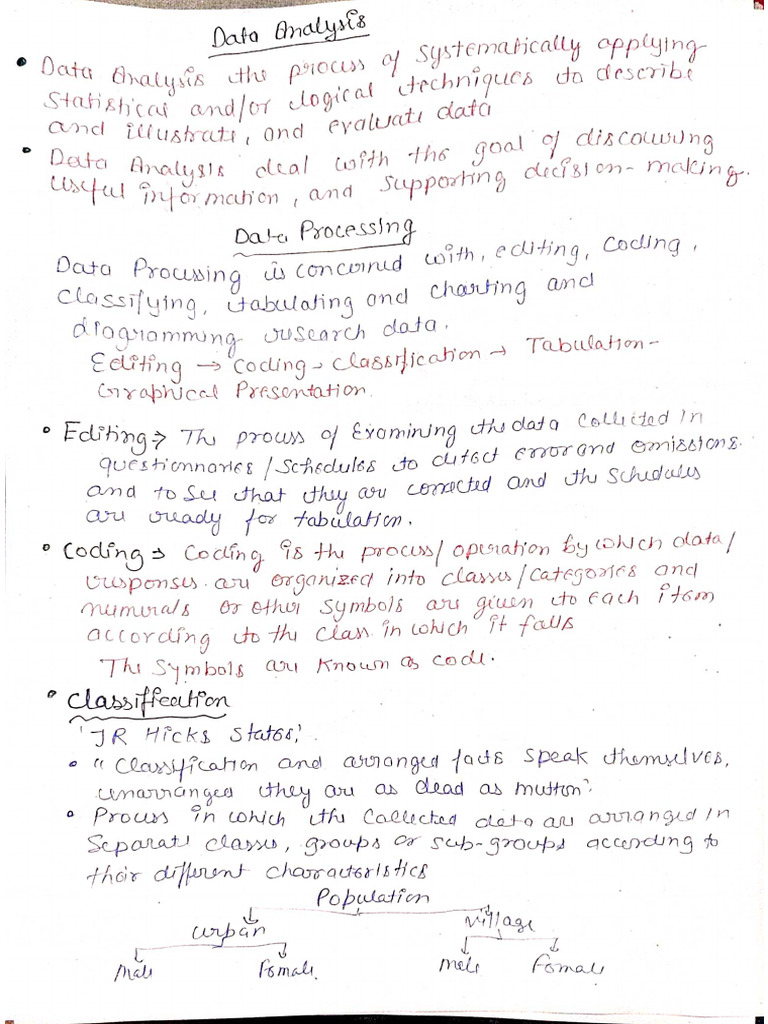 Data Analysis
• Data Analysis the process of systematically applying
Statistical and/or logical techniques to describe
and illustrate, and evaluate data
• Data Analysis deal with the goal of discovering
useful information, and supporting decision-making.
Data Processing
Data Processing is concerned with, editing, coding,
classifying, tabulating and charting and
diagramming research data.
Editing → coding → classification → Tabulation -
Graphical Presentation.
• Editing → The process of Examining the data collected in
questionnaries/schedules to detect error and omissions.
and to see that they are corrected and the schedules
are ready for tabulation.
• Coding → Coding is the process/operation by which data/
responses are organized into classes/categories and
numerals or other symbols are given to each item
according to the class in which it falls
The Symbols are known as code.
• Classification
'JR Hicks States,'
• "Classification and arranged facts speak themselves,
unarranged they are as dead as mutton".
• Process in which the collected data are arranged in
Separate classes, groups or sub-groups according to
their different characteristics
Population
urban village
Male Female Male Female